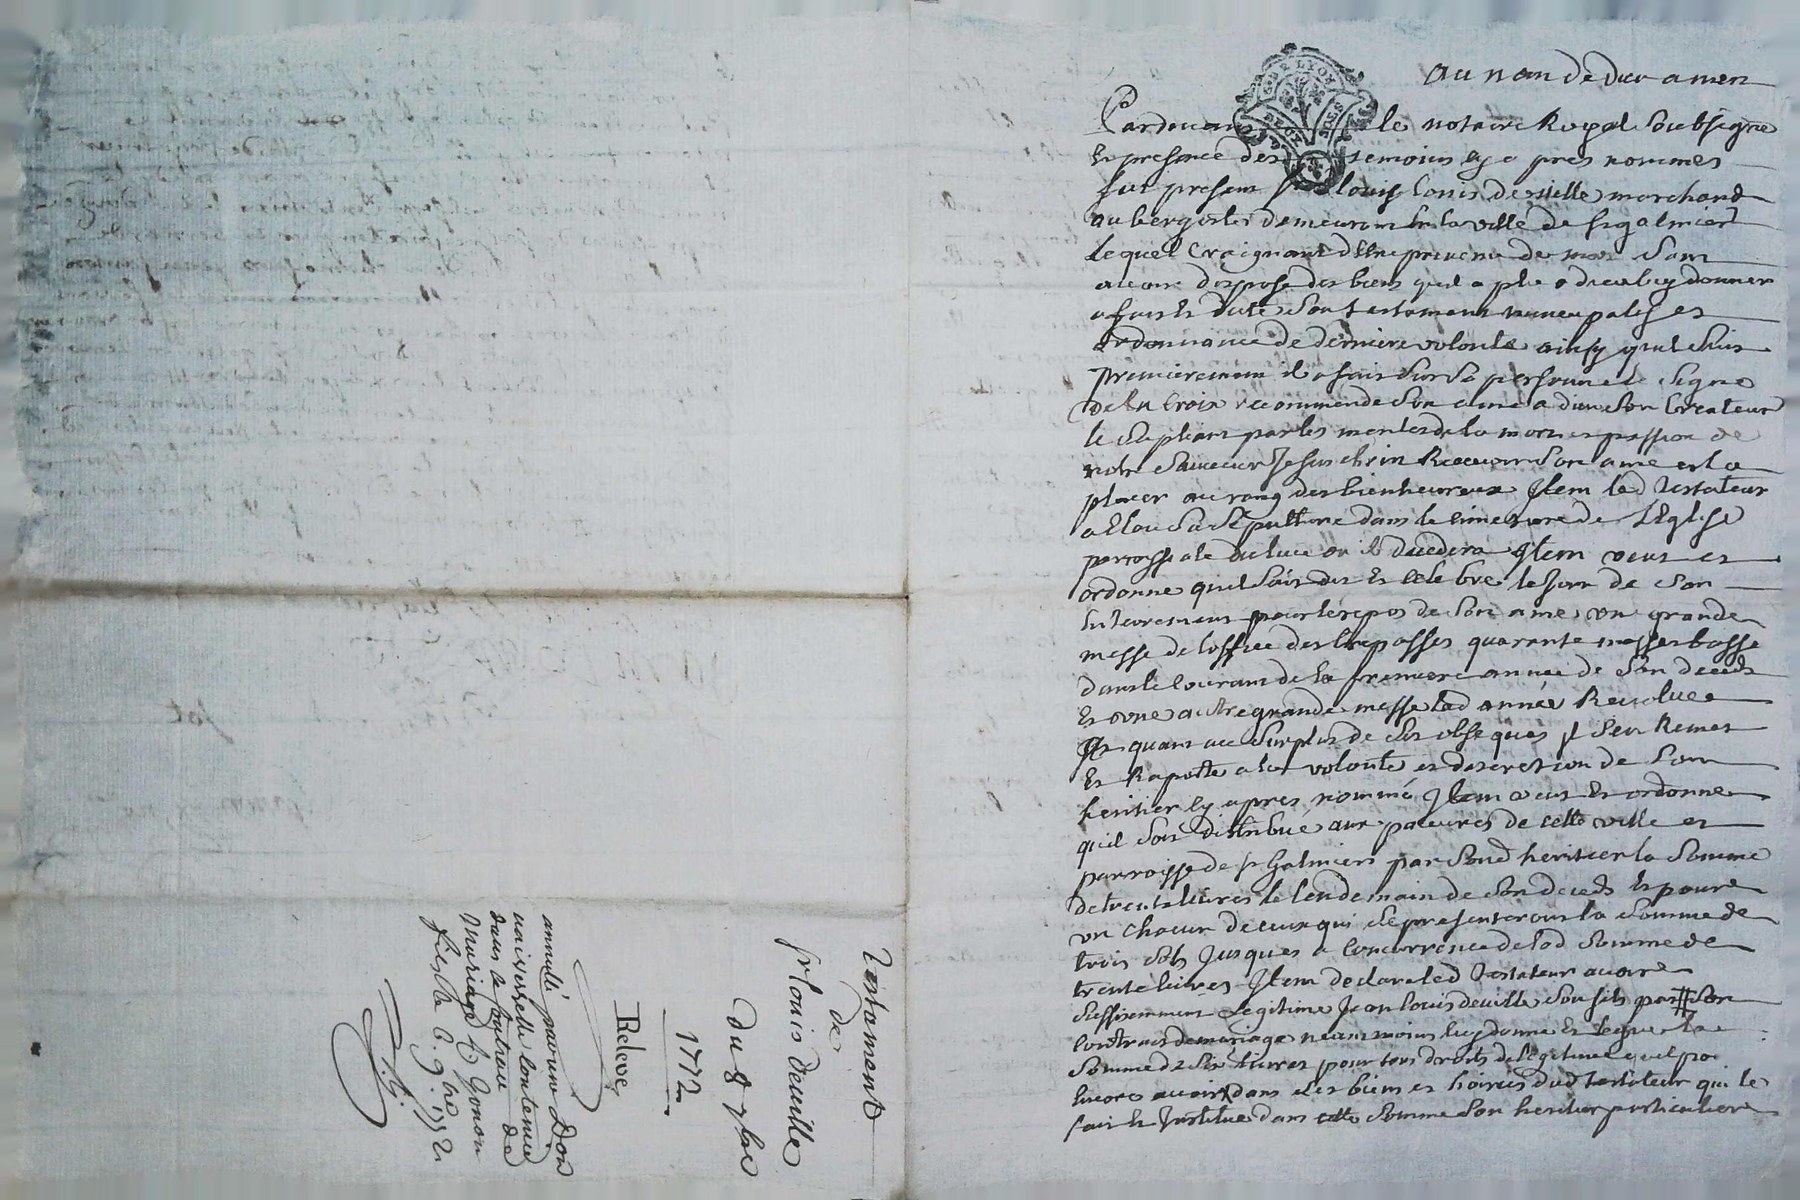 au nom de dieu amen
Pardevant le notaire Royal Soubsigne
Et presence des temoins cy apres nommes
fut present Sr louis louis deville marchand
aubergiste demeurant En la ville de St galmier
Lequel Craignant d'Etre prevenu de mort Sans
avoir dispose des biens quil a plu a dieu luy donner
a fait Et dicté Son testament nuncupatif et
ordonnance de derniere volonté ainsy quil Suit
premierement il a fait Sur Sa personne le Signe
de la Croix recommendé Son ame a dieu Son Createur
le Supliant par les merites de la mort et passion de
notre Sauveur Jesus christ Recevoir Son ame et la
placer au rang des bienheureux Item led Testateur
a Elou Sa Sepulture dans le cimetiere de L'Eglise
parroissiale du lieu ou il decedera Item veut et
ordonne quil Soit dit Et celebre le Jour de Son
Enterrement pour le repos de Son ame une grande
messe de loffice des trepasses quarante messes basse
dans le Courant de la premiere année de Son deceds
Et une autre grande messe lad année Revolue
Et quant au Surplus de Ses obseques Il Sen Remet
Et Raporte a la volonté et discretion de Son
heritier cy apres nommé Item veut Et ordonne
quil Soit distribué aux pauvres de cette ville et
parroisse de St Galmier par Sond heritier la Somme
de trente livres le lendemain de Son deceds Et pour
un chacun de ceux qui Se presenteront la Somme de
trois Sols Jusques a Concurrence de lad Somme de
trente livres Item declare led Testateur avoir
Suffisemment Legitime Jean louis deville Son fils par Son
Contrat de mariage neanmoins luy donne Et legue la
Somme de Six livres pour tous droits de legitime quil po
Encore avoir dans Ses biens et hoiries dud testateur qui le
fait Et Institue dans cette Somme Son heritier particulier
Testament
de
Sr louis deville
du 8 7bre
1772
Relevé
annullé par une Don
universelle Contenue
dans le Contract de
Mariage de
9bre 1772